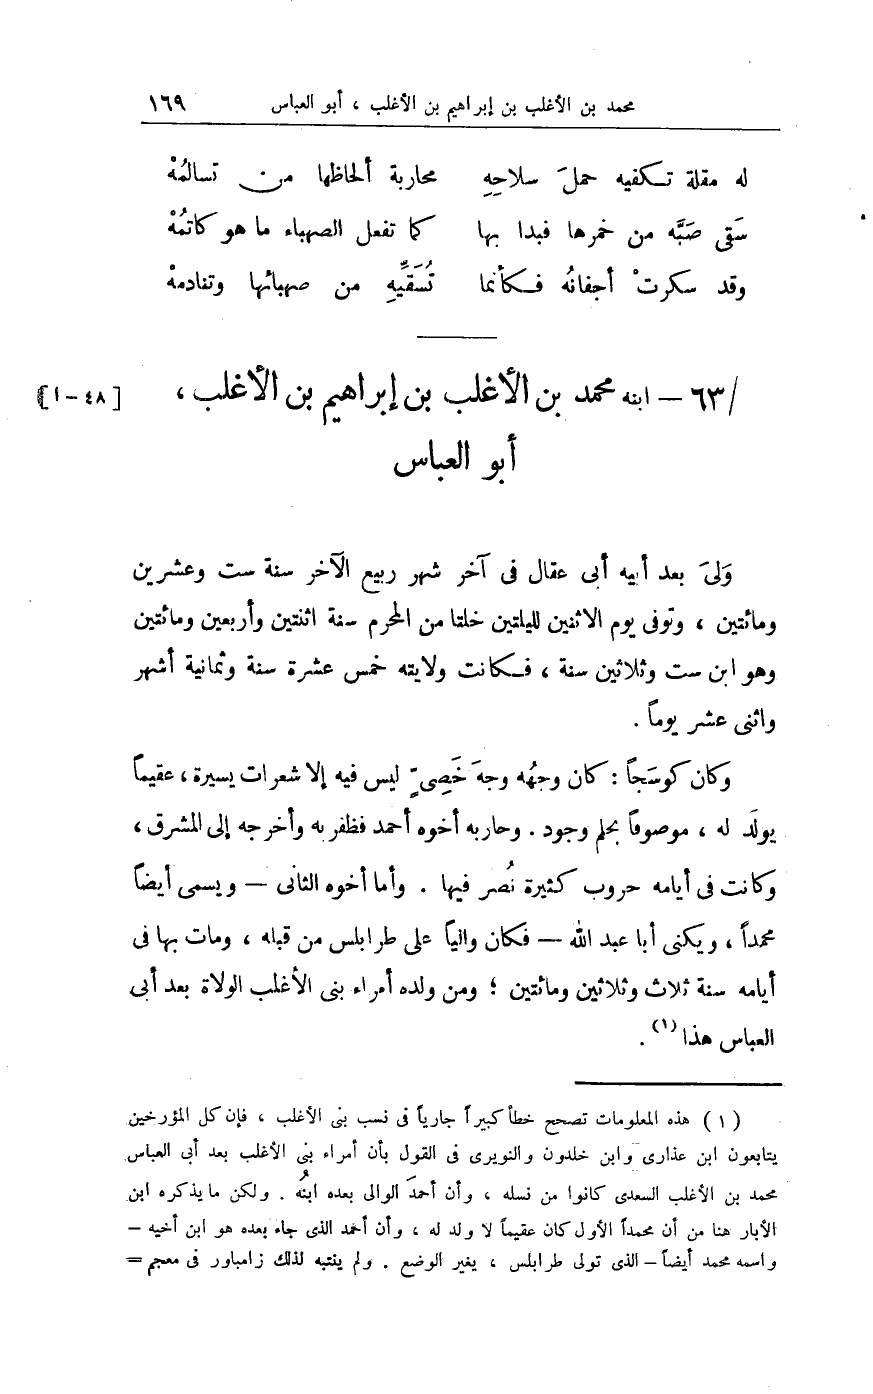 محمد بن الأغلب بن إبراهيم بن الأغلب ، أبو العباس ١٦٩
له مقلة تكفيه حملَ سلاحِهِ محاربة ألحاظها من تسالمُهْ
سَقى صَبَّه من خمرها فبدا بها كما تفعل الصهباء ما هو كاتمُهْ
وقد سكرتْ أجفانُه فكأنما تُسَقِّيهِ من صهبائها وتنادمهْ
/ ٦٣ – ابنه محمد بن الأغلب بن إبراهيم بن الأغلب ، [ ٤٨ - ا ]
أبو العباس
وَلىَ بعد أبيه أبى عقال فى آخر شهر ربيع الآخر سنة ست وعشرين
ومائتين ، وتوفى يوم الاثنين لليلتين خلتا من المحرم سنة اثنتين وأربعين ومائتين
وهو ابن ست وثلاثين سنة ، فكانت ولايته خمس عشرة سنة وثمانية أشهر
واثنى عشر يوماً .
وكان كوسَجاً : كان وجهُه وجهَ خَصِىٍّ ليس فيه إلا شعرات يسيرة ، عقيماً
يولَد له ، موصوفاً بحلم وجود . وحاربه أخوه أحمد فظفر به وأخرجه إلى المشرق ،
وكانت فى أيامه حروب كثيرة نُصر فيها . وأما أخوه الثانى – ويسمى أيضاً
محمداً ، ويكنى أبا عبد الله – فكان والياً على طرابلس من قبله ، ومات بها فى
أيامه سنة ثلاث وثلاثين ومائتين ؛ ومن ولده أمراء بنى الأغلب الولاة بعد أبى
العباس هذا (١) .
( ١ ) هذه المعلومات تصحح خطأ كبيراً جارياً فى نسب بنى الأغلب ، فإن كل المؤرخين
يتابعون ابن عذارى وابن خلدون والنويرى فى القول بأن أمراء بنى الأغلب بعد أبى العباس
محمد بن الأغلب السعدى كانوا من نسله ، وأن أحمدَ الوالى بعده ابنُه . ولكن ما يذكره ابن
الأبار هنا من أن محمداً الأول كان عقيماً لا ولد له ، وأن أحمد الذى جاء بعده هو ابن أخيه –
واسمه محمد أيضاً – الذى تولى طرابلس ، يغير الوضع . ولم ينتبه لذلك زامباور فى معجم =